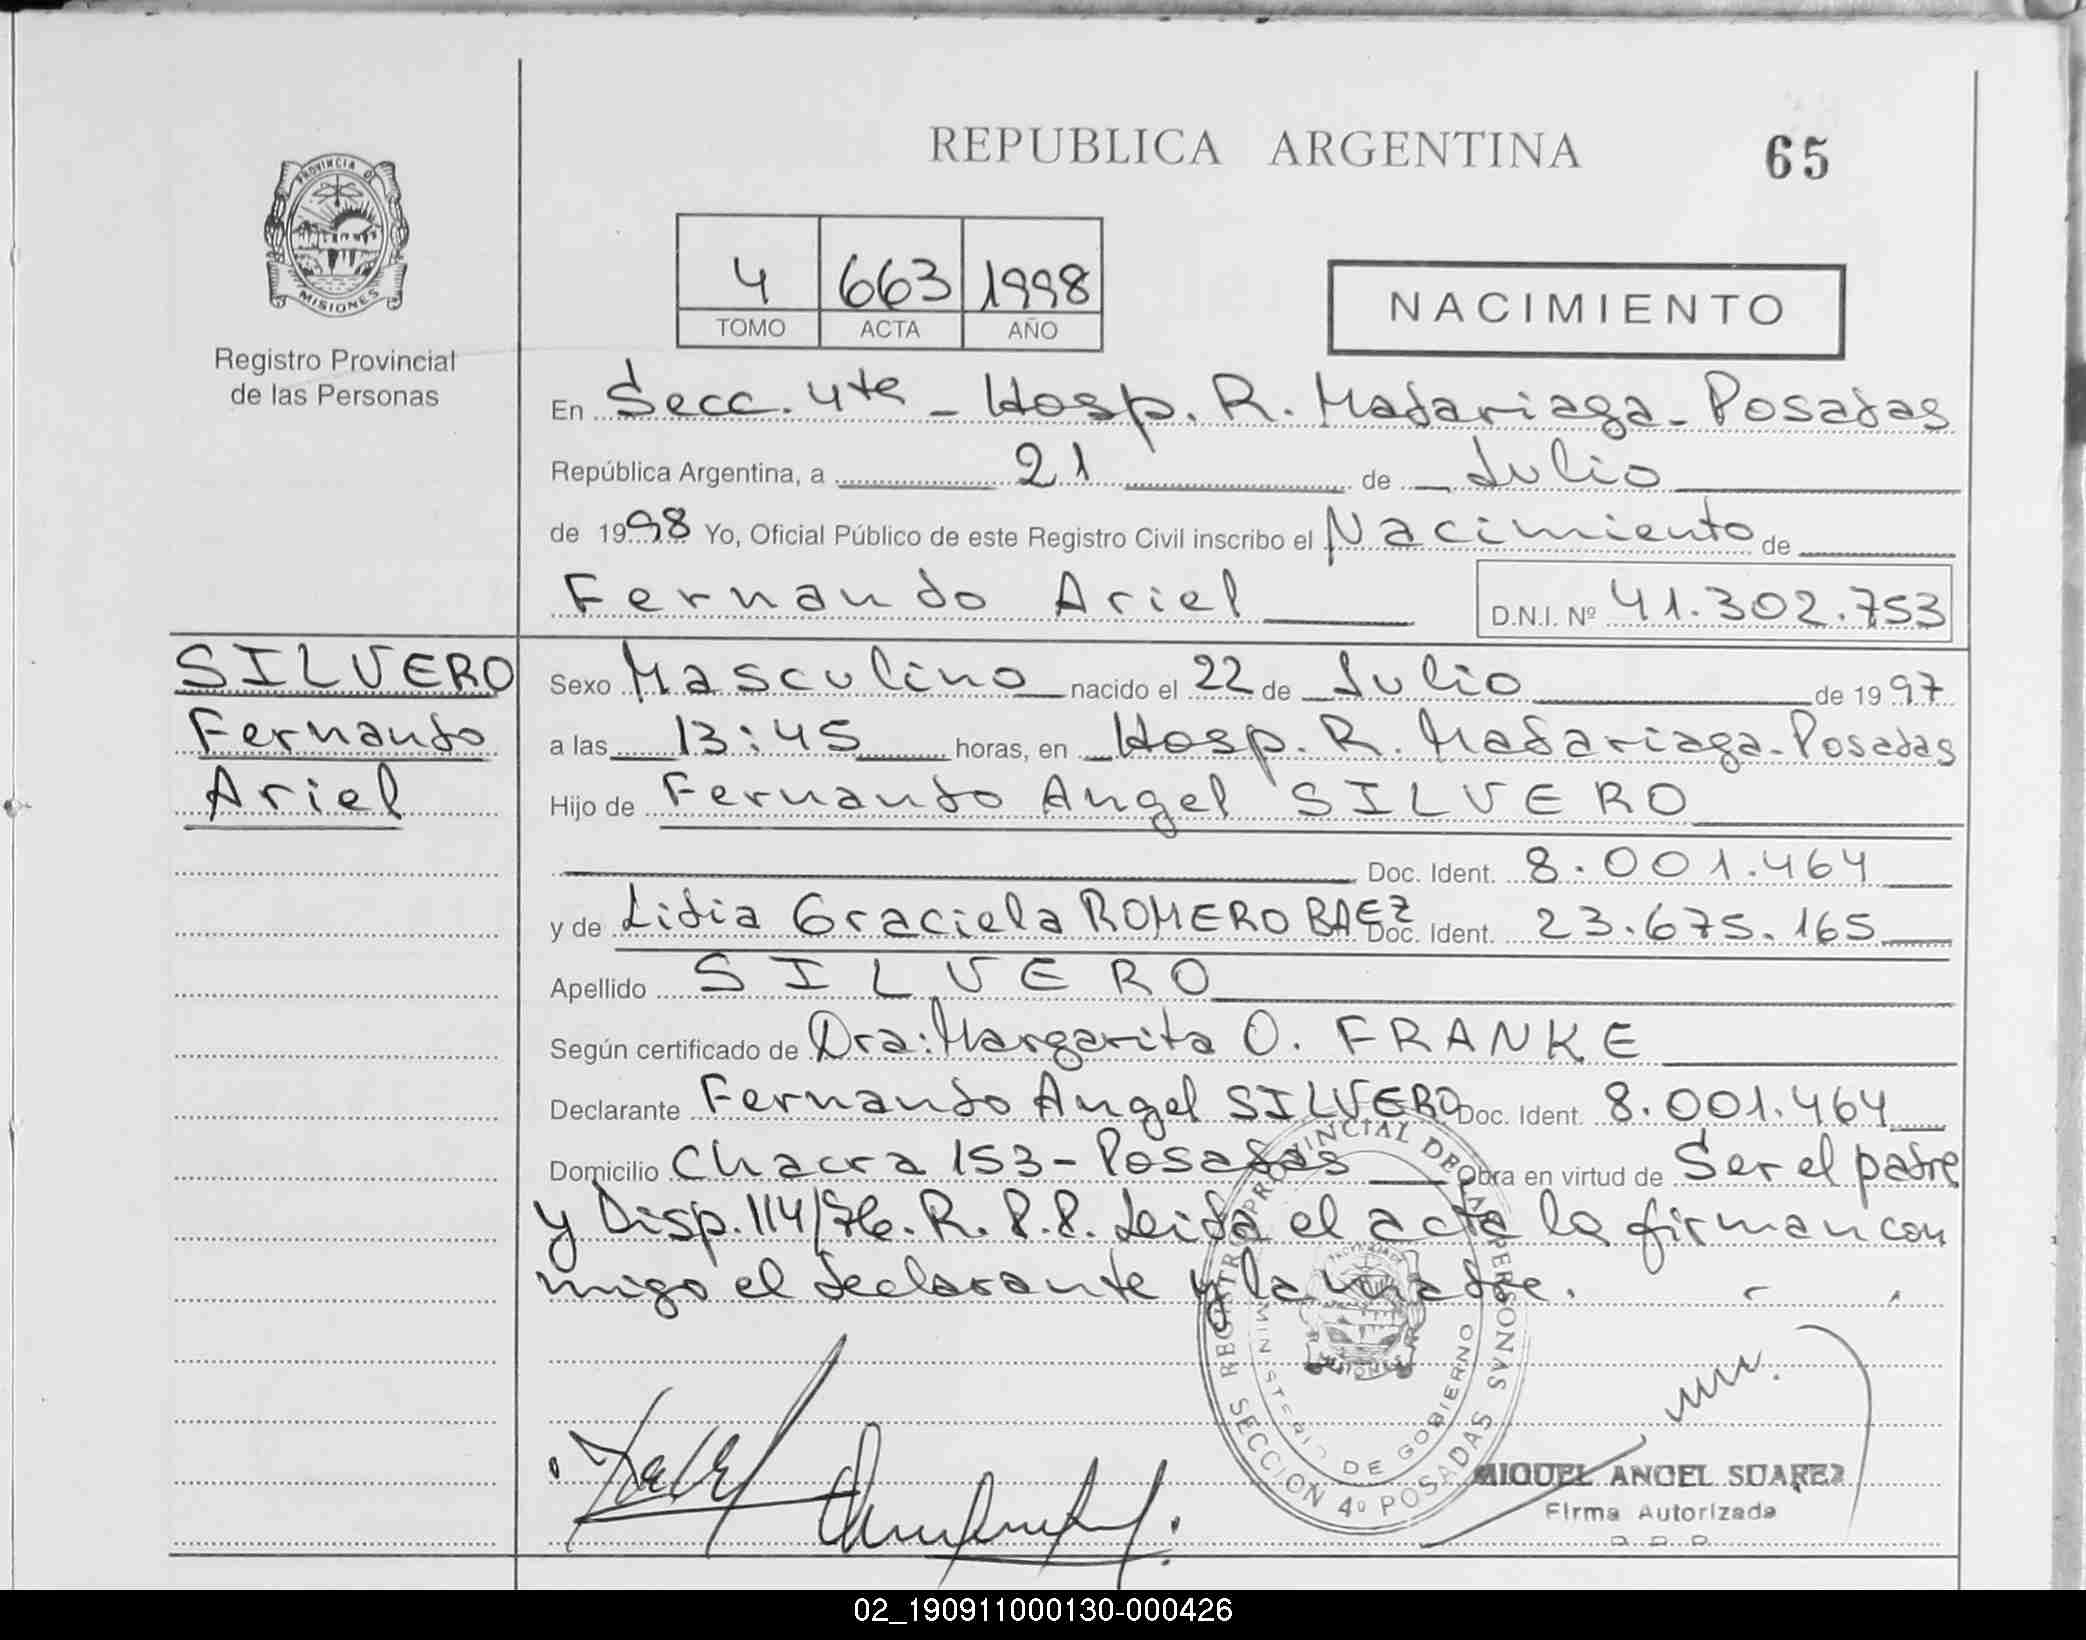 REPUBLICA ARGENTINA
65
PROVINCIA DE
MISIONES
Registro Provincial
de las Personas
4 663 1998
TOMO ACTA AÑO
NACIMIENTO
En Secc. 4ta - Hosp. R. Madariaga - Posadas
República Argentina, a 21 de Julio
de 1998 Yo, Oficial Público de este Registro Civil inscribo el Nacimiento de
Fernando Ariel D.N.I. Nº 41.302.753
SILVERO
Fernando
Ariel
Sexo Masculino nacido el 22 de Julio de 1997
a las 13:45 horas, en Hosp. R. Madariaga - Posadas
Hijo de Fernando Angel SILVERO
Doc. Ident. 8.001.464
y de Lidia Graciela ROMERO BAEZ Doc. Ident. 23.675.165
Apellido SILVERO
Según certificado de Dra: Margarita O. FRANKE
Declarante Fernando Angel SILVERO Doc. Ident. 8.001.464
Domicilio Chacra 153 - Posadas Obra en virtud de Ser el padre
y Disp. 114/76. R.P.P. Leida el acta la firman con
migo el declarante y la madre.
REGISTRO PROVINCIAL DE LAS PERSONAS
MINISTERIO DE GOBIERNO
SECCION 4º POSADAS
MIGUEL ANGEL SUAREZ
Firma Autorizada
02_190911000130-000426